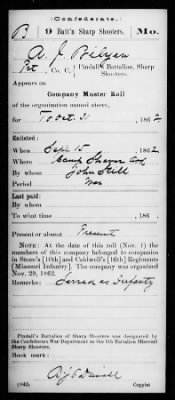 Confederate.
B 9 Batt'n Sharp Shooters. Mo.
A. J. Bilyau
Pvt, Co. C, Pindall's Battalion, Sharp Shooters.
Appears on
Company Muster Roll
of the organization named above,
for To Oct. 31, 1862
Enlisted:
When Sept 15, 1862
Where Camp Shaver Ark
By whom John Hill
Period War
Last paid:
By whom
To what time , 186 .
Present or absent Present
NOTE: At the date of this roll (Nov. 1) the
members of this company belonged to companies
in Steen's [10th] and Caldwell's [16th] Regiments
[Missouri Infantry]. The company was organized
Nov. 29, 1862.
Remarks: Served as Infantry
Pindall's Battalion of Sharp Shooters was designated by
the Confederate War Department as the 9th Battalion Missouri
Sharp Shooters.
Book mark:
(642)
Copyist.